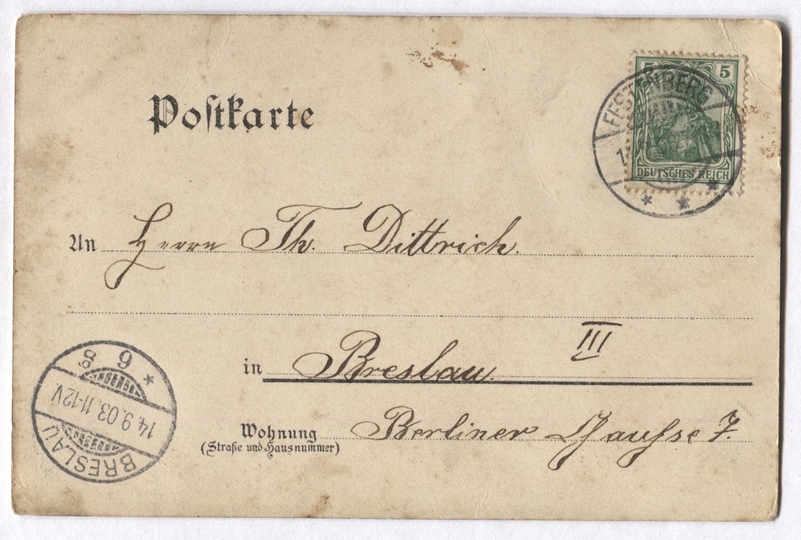 Postkarte
5 5
FESTENBERG
DEUTSCHES REICH
An Herrn Th. Dittrich.
III
in Breslau.
Wohnung
(Straße und Hausnummer)
Berliner Chaussee 7.
BRESLAU
14.9.03.11-12V
* 9 8